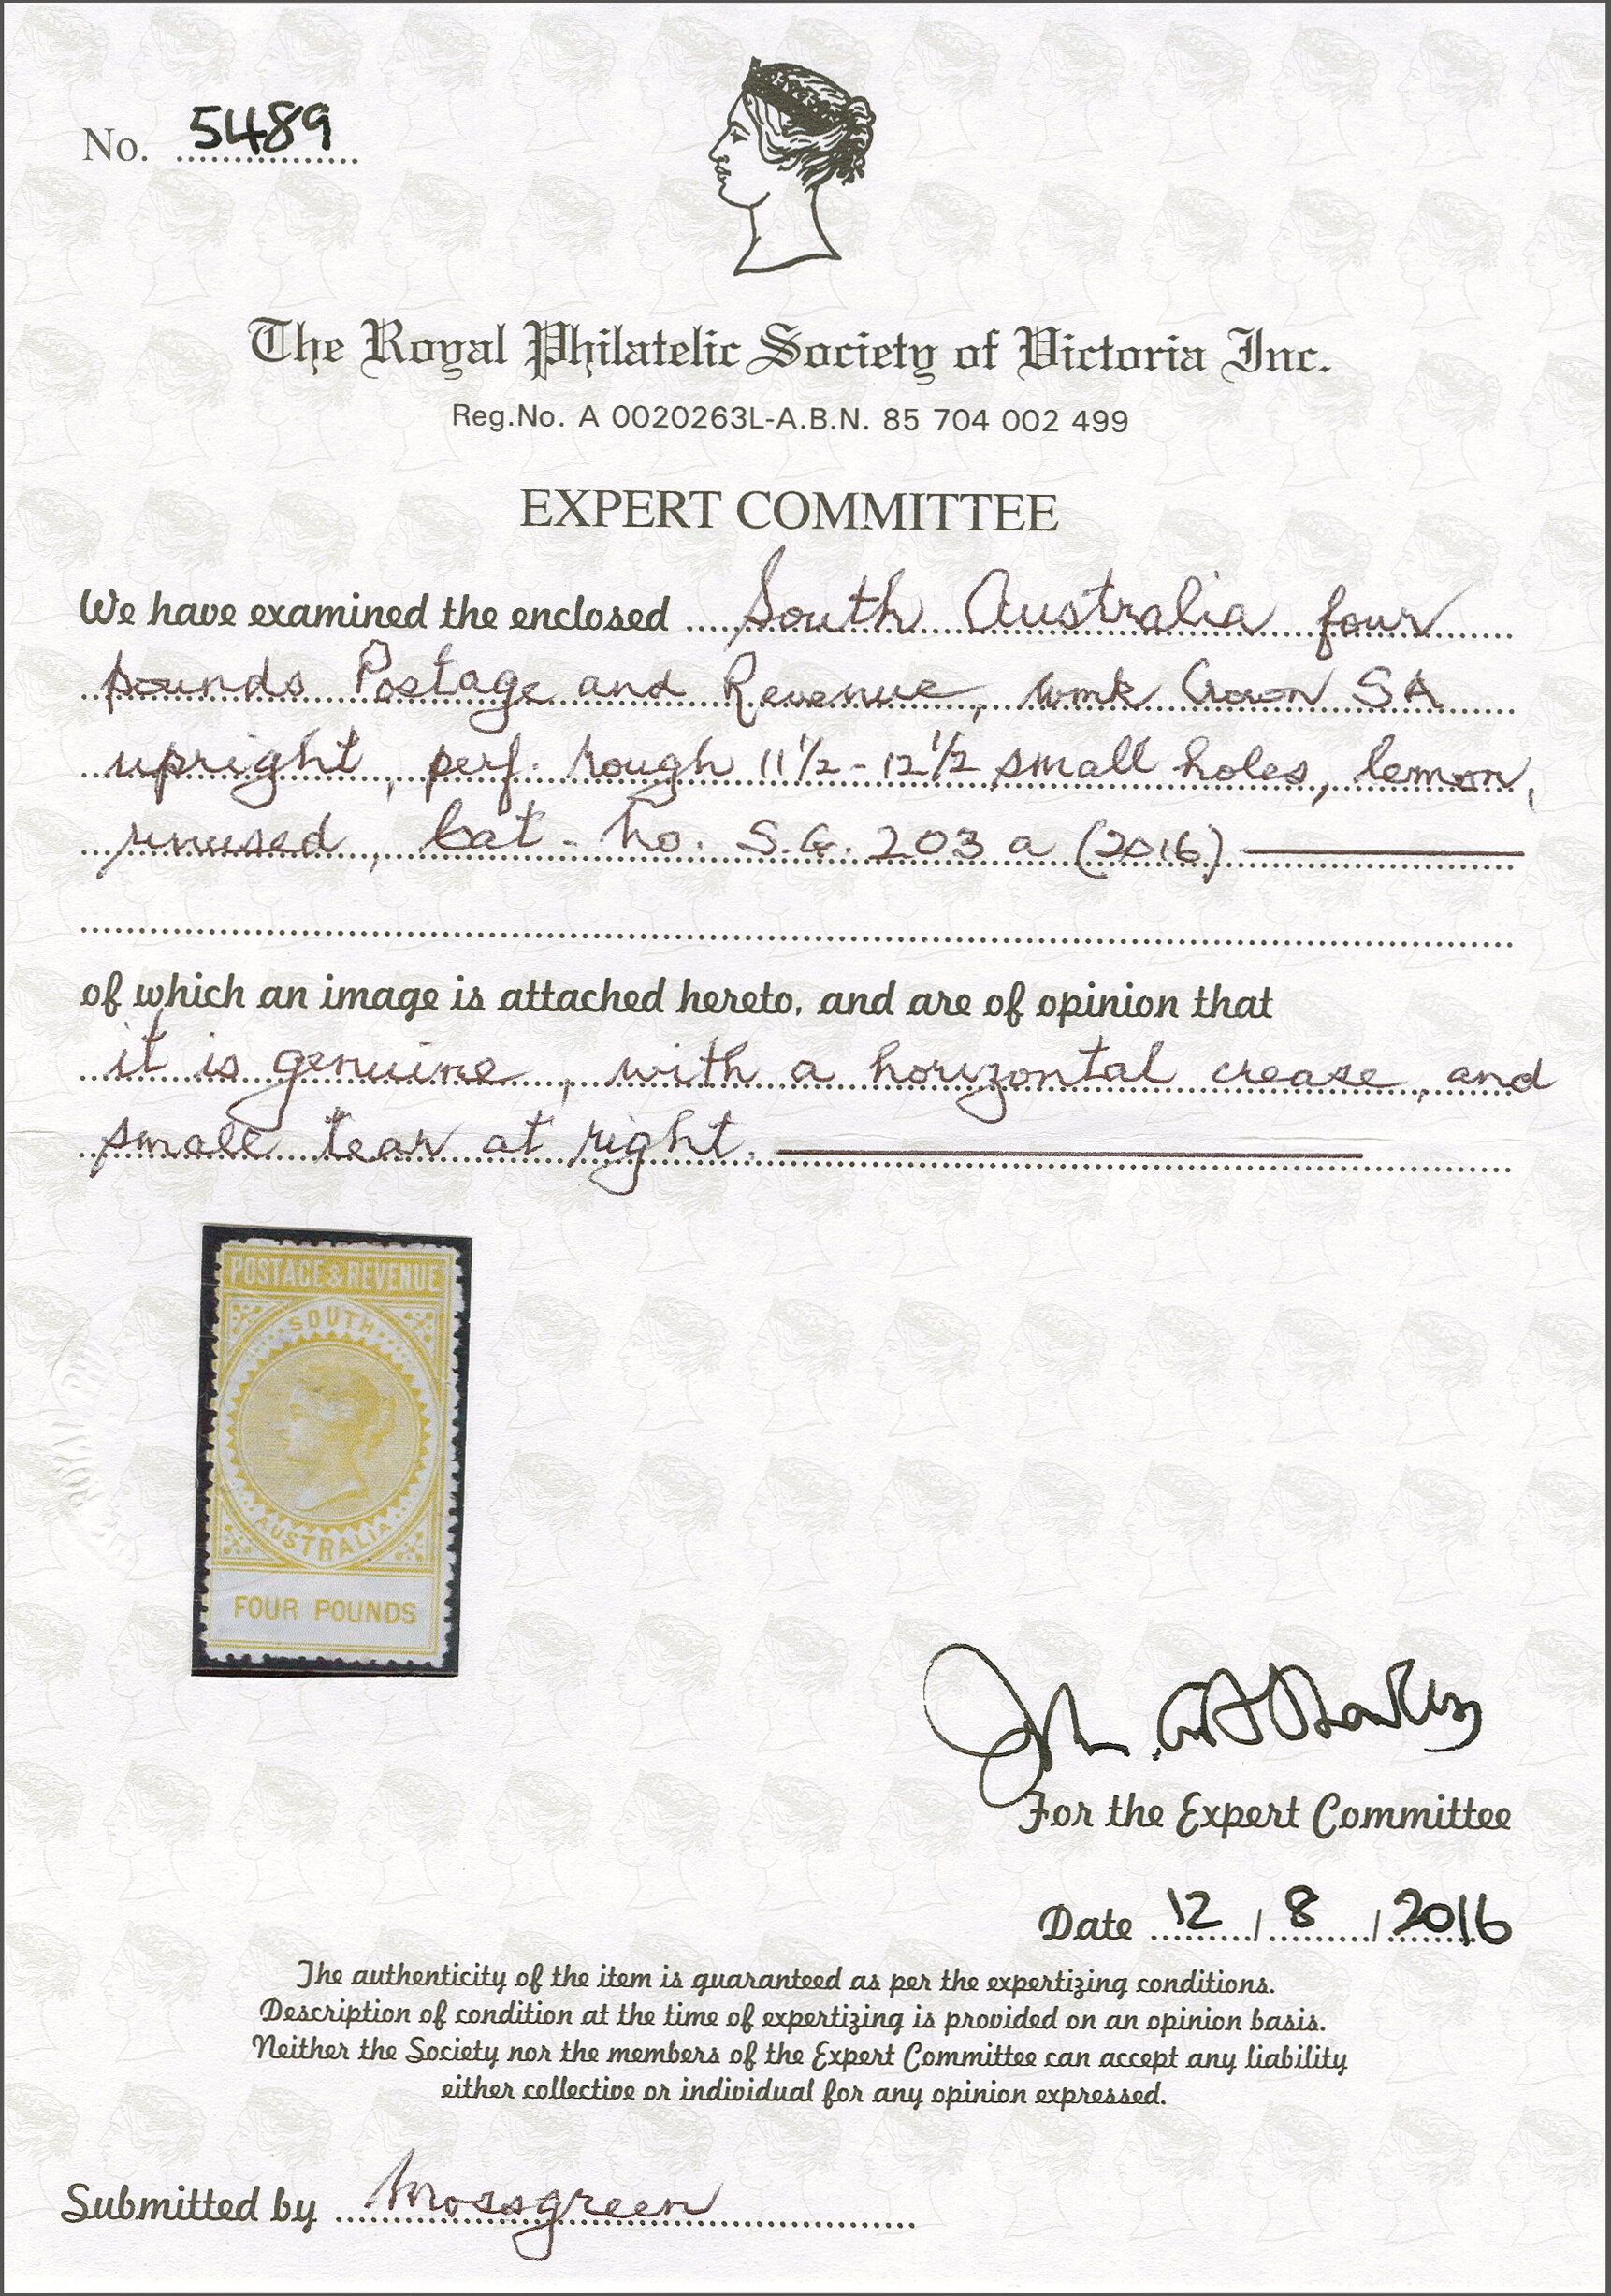 No. 5489
The Royal Philatelic Society of Victoria Inc.
Reg.No. A 0020263L-A.B.N. 85 704 002 499
EXPERT COMMITTEE
We have examined the enclosed South Australia four
pounds Postage and Revenue, wmk Crown SA
upright, perf. rough 11½-12½ small holes, lemon,
unused, Cat. no. S.G. 203a (2016)
of which an image is attached hereto, and are of opinion that
it is genuine, with a horizontal crease, and
small tear at right.
POSTAGE & REVENUE
SOUTH
AUSTRALIA
FOUR POUNDS
John
For the Expert Committee
Date 12 / 8 / 2016
The authenticity of the item is guaranteed as per the expertizing conditions.
Description of condition at the time of expertizing is provided on an opinion basis.
Neither the Society nor the members of the Expert Committee can accept any liability
either collective or individual for any opinion expressed.
Submitted by Mossgreen